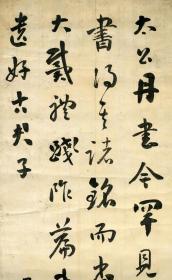 太公丹書今罕見
書得其諸銘而書
大戴禮踐阼篇
遺好古君子